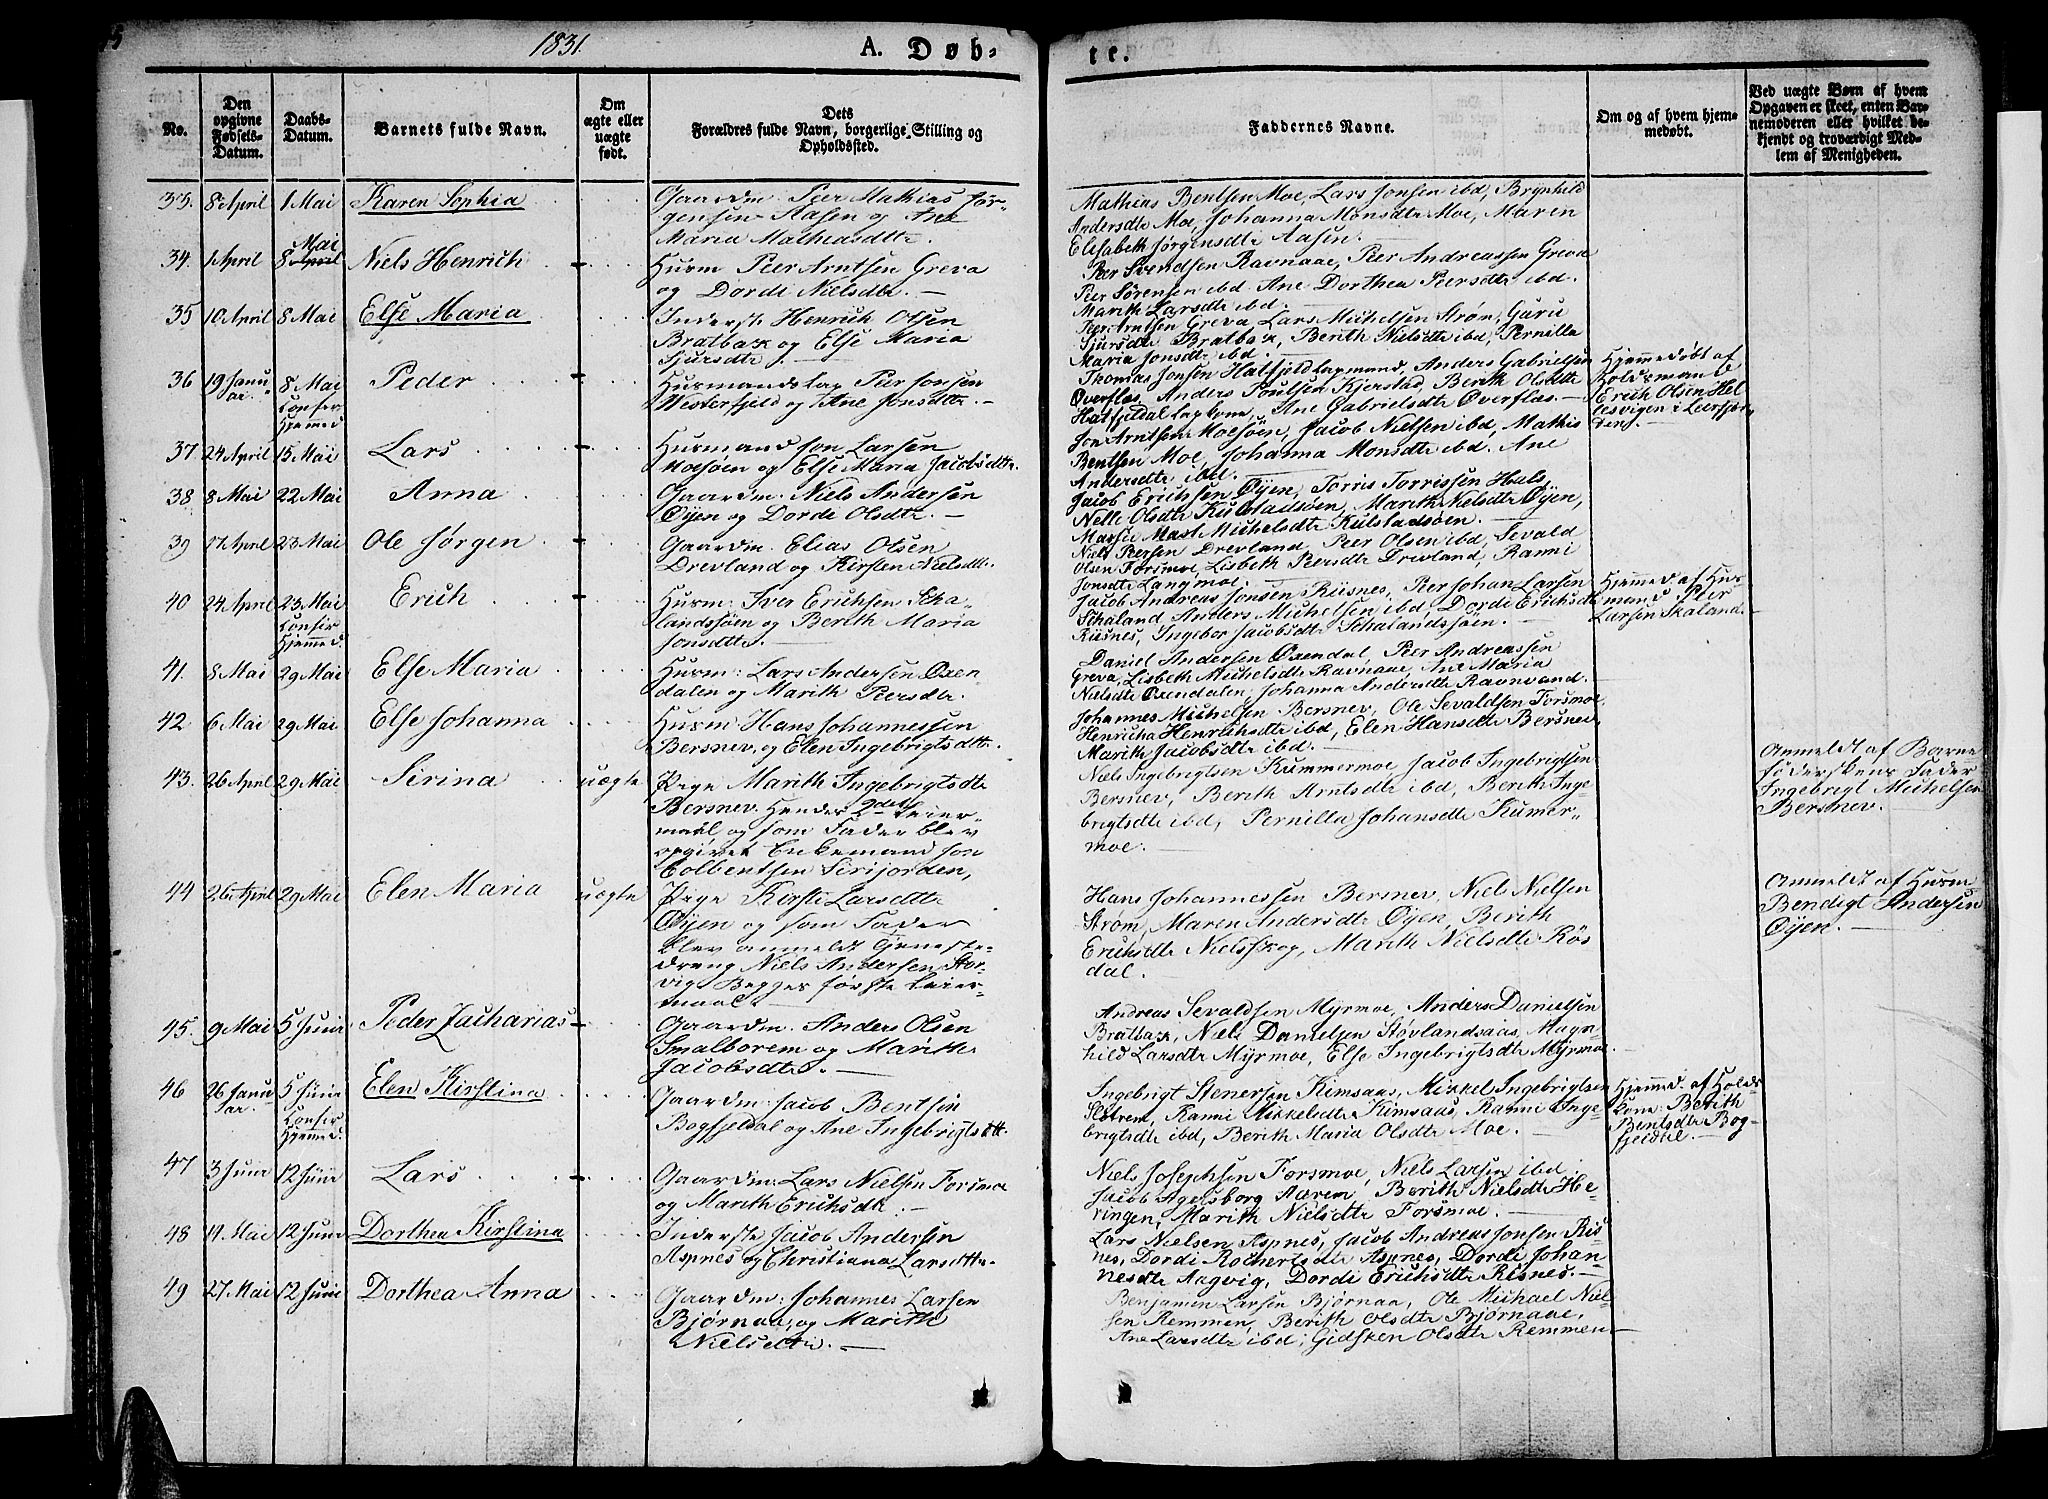 1831.
A. Døb-
te.
No.
Den
opgivne
Fødsels-
Datum.
Daabs-
Datum.
Barnets fulde Navn.
Om
ægte eller
uægte
født.
Dets
Forældres fulde Navn, borgerlige Stilling og
Opholdssted.
Faddernes Navne.
Om og af hvem hjem-
medøbt.
Ved uægte Børn af hvem
Opgaven er skeet, enten Bar-
nemoderen eller hvilket be-
kjendt og troværdigt Med-
lem af Menigheden.
8 April 1 Mai Karen Sophia
Gaardm Peer Mathias Jør-
gensen Aasen og Ane
Maria Mathiasdtr.
Mathias Bentsen Moe, Lars Jonsen ibd, Brynhild
Andersdtr Moe, Johanna Monsdtr Moe, Maren
Elisabeth Jørgensdtr Aasen.
34. 1 April 8 Mai April Niels Henrich -
Husm Peer Arntsen Greva
og Dordi Nielsdtr. -
Peer Svendsen Ravnaae, Peer Andreassen Greva
Peer Sørensen ibd Ane Dorthea Peersdtr ibd.
Marith Larsdtr ibd.
35 10 April 8 Mai Else Maria
Inderste Henrich Olsen
Bratbak og Else Maria
Sjursdtr.
Peer Arntsen Greva, Lars Michelsen Strøm, Guru
Sjursdtr Bratbak, Berith Nielsdtr ibd, Pernilla
Maria Jonsdtr ibd.
36 19 Janu-
ar. 8 Mai
Confir
Hjemmed Peder -
Husmandslap Peer Jonsen
Westerfjeld og Ane Jonsdtr. -
Thomas Jonsen Hatfjeldlapmand, Anders Gabrielsen
Øverflas, Anders Poulsen Kjerstad, Berith Olsdtr
Hatfjeldal lapkone, Ane Gabrielsdtr Øverflas. -
Hjemmedøbt af
Holdsmand
Erich Olsen Hel-
lesvigen i Leerfjor-
den.
37 24 April 15 Mai Lars
Husmand Jon Larsen
Moesøen og Else Maria Jacobsdtr.
Jon Arntsen Moesøen, Jacob Nielsen ibd, Mathis
Bentsen Moe, Johanna Monsdtr ibd. Ane
Andersdtr ibd.
38 8 Mai 22 Mai Anna
Gaardm. Niels Andersen
Øyen og Dordi Olsdtr. -
Jacob Erichsen Øyen, Torris Torrissen Huls,
Nelle Olsdtr Kulstadsøen, Marith Nielsdtr Øyen,
Massie Mast Michelsdtr Kulstadsøen. -
39 17 April 23 Mai Ole Jørgen -
Gaardm. Elias Olsen
Drevland og Kirsten Nielsdtr.
Niels Persen Drevland, Peer Olsen ibd, Sevald
Olsen Forsmoe, Lisbeth Peersdtr Drevland, Ranni
Jonsdtr Langmoe. -
40 24 April 23 Mai
Confir
Hjemmed. Erich -
Husm: Iver Erichsen Ska-
landssøen og Berith Maria
Jonsdtr. -
Jacob Andreas Jonsen Riisnes, Peer Johan Larsen
Schaland Anders Michelsen ibd, Dordi Erichsdtr
Riisnes, Ingebor Jacobsdtr Schalandssøen. -
Hjemmed af Hus-
mand Peer
Larsen Skaland. -
41. 8 Mai 29 Mai Else Maria
Husm: Lars Andersen Øxen
dalen og Marith Peersdtr.
Daniel Andersen Øxendal, Peer Andreassen
Greva, Lisbeth Michelsdtr Ravnaae, Ane Maria
Nielsdtr Øxendalen, Johanna Andersdtr Ravnvand.
42. 6 Mai 29 Mai Else Johanna
Husm: Hans Johannessen
Bersnev, og Elen Ingebrigtsdtr.
Johannes Michelsen Bersnev, Ole Sevaldsen Forsmoe
Henricha Henrichsdtr ibd, Elen Hansdtr Bersnev
Marith Jacobsdtr ibd. -
43. 26 April 29 Mai Sirina uægte
Pige Marith Ingebrigtsdtr
Bersnev. Hendes 2det Leier-
maal og som Fader blev
opgivet Enkemand Jon
Colbentsen Sirijorden,
Niels Ingebrigtsen Kummermoe Jacob Ingebrigtsen
Bersnev, Berith Arntsdtr ibd, Berith Inge-
brigtsdtr ibd, Pernilla Johansdtr Kumer-
moe.
Anmeldt af Barne
føderskens Fader
Ingebrigt Michelsen
Bersnev.
44 26 April 29 Mai Elen Maria uægte
Pige Kirsti Larsdtr
Øyen og som Fader
blev anmeldt Tjeneste-
dreng Niels Andersen Stor-
vig Begges første Leier-
maal.
Hans Johannessen Bersnev, Niels Nielsen
Strøm, Maren Andersdtr Øyen, Berith
Erichsdtr Nielsskog, Marith Nielsdtr Røs
dal.
Anmeldt af Husm
Bendigt Andersen
Øyen. -
45. 9 Mai 5 Juni Peder Zacharias -
Gaardm. Anders Olsen
Smalborem og Marith
Jacobsdtr. -
Andreas Sevaldsen Myrmoe, Anders Danielsen
Bratbak, Niels Danielsen Støvlandsaas, Magn-
hild Larsdtr Myrmoe, Else Ingebrigtsdtr Myrmoe.
46 26 Janu-
ar. 5 Juni
Confir
Hjemmed. Elen Kirstina
Gaardm: Jacob Bentsen
Bogfjeldal og Ane Ingebrigtsdtr.
Ingebrigt Stenersen Kimsaas, Mikkel Ingebrigtsen
Ranni Mikkelsdtr Kimsaas, Ranni Inge-
brigtsdtr ibd, Berith Maria Olsdtr Moe. -
Hjemmed. af Holds
Kone Berith
Bentsdtr Bog-
fjeldal. -
47 3 Juni 12 Juni Lars -
Gaardm: Lars Nielsen Forsmoe
og Marith Erichsdtr. -
Niels Josephsen Forsmoe, Niels Larsen ibd.
Jacob Agersborg Aarem, Berith Nielsdtr He-
ringen, Marith Nielsdtr Forsmoe. -
48 14 Mai 12 Juni Dorthea Kirstina
Inderste Jacob Andersen
Aspnes og Christiana Larsdtr.
Lars Nielsen Aspnes, Jacob Andreas Jonsen Ris-
nes, Dordi Rochertsdtr Aspnes, Dordi Johan-
nesdtr Aagvig, Dordi Erichsdtr Risnes. -
49 27 Mai 12 Juni Dorthea Anna
Gaardm: Johannes Larsen
Bjørnaa, og Marith
Nielsdtr. -
Benjamen Larsen Bjørnaa, Ole Michael Niel-
sen Remmen, Berith Olsdtr Bjørnaae,
Ane Larsdtr ibd, Gidsken Olsdtr Remmen -